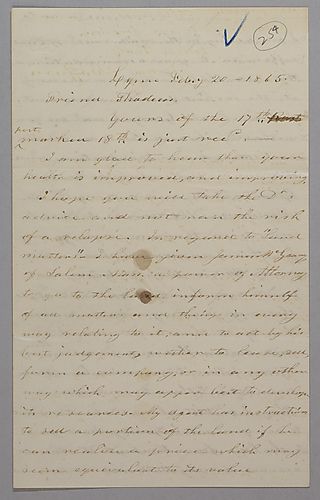 254
Lynn Feby 20 - 1865.
Friend Thadeus.
Yours of the 17th
post
marked 18th is just recd.
I am glad to hear that your
health is improved, and improving
I hope you will take the Drs
advice and not run the risk
of a relapse. In regard to "land
matters" I have given James
of Salem Mass. a power of Attorney
to go to the land inform himself
of all matters and things in every
way relating to it, and to act by his
own judgement, wether to lease, sell
form a company, or in any other
way which may appear best to develop
its resources. My agent has instructions
to sell a portion of the land if he
can realise a price which may
seem equivalent to its value